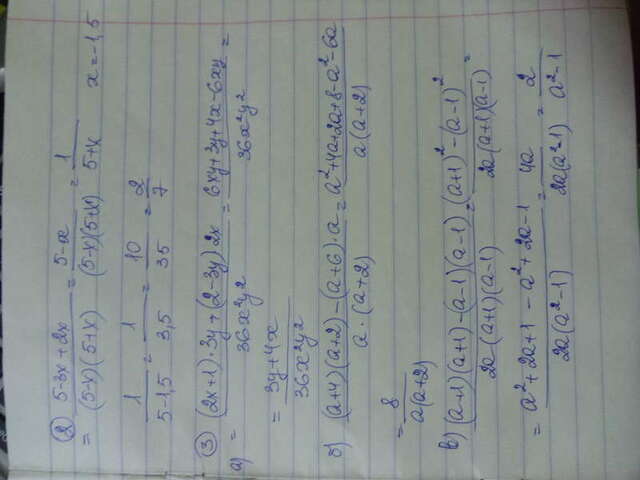 ② = (5-3x+2x)/((5-x)(5+x)) = (5-x)/((5-x)(5+x)) = 1/(5+x) x=-1,5
1/(5-1,5) = 1/3,5 = 10/35 = 2/7
③ а) = ((2x+1)·3y+(2-3y)2x)/(36x²y²) = (6xy+3y+4x-6xy)/(36x²y²) =
= (3y+4x)/(36x²y²)
б) ((a+4)(a+2)-(a+6)·a)/(a·(a+2)) = (a²+4a+2a+8-a²-6a)/(a(a+2))
= 8/(a(a+2))
в) ((a+1)(a+1)-(a-1)(a-1))/(2a(a+1)(a-1)) = ((a+1)²-(a-1)²)/(2a(a+1)(a-1)) =
= (a²+2a+1-a²+2a-1)/(2a(a²-1)) = 4a/(2a(a²-1)) = 2/(a²-1)